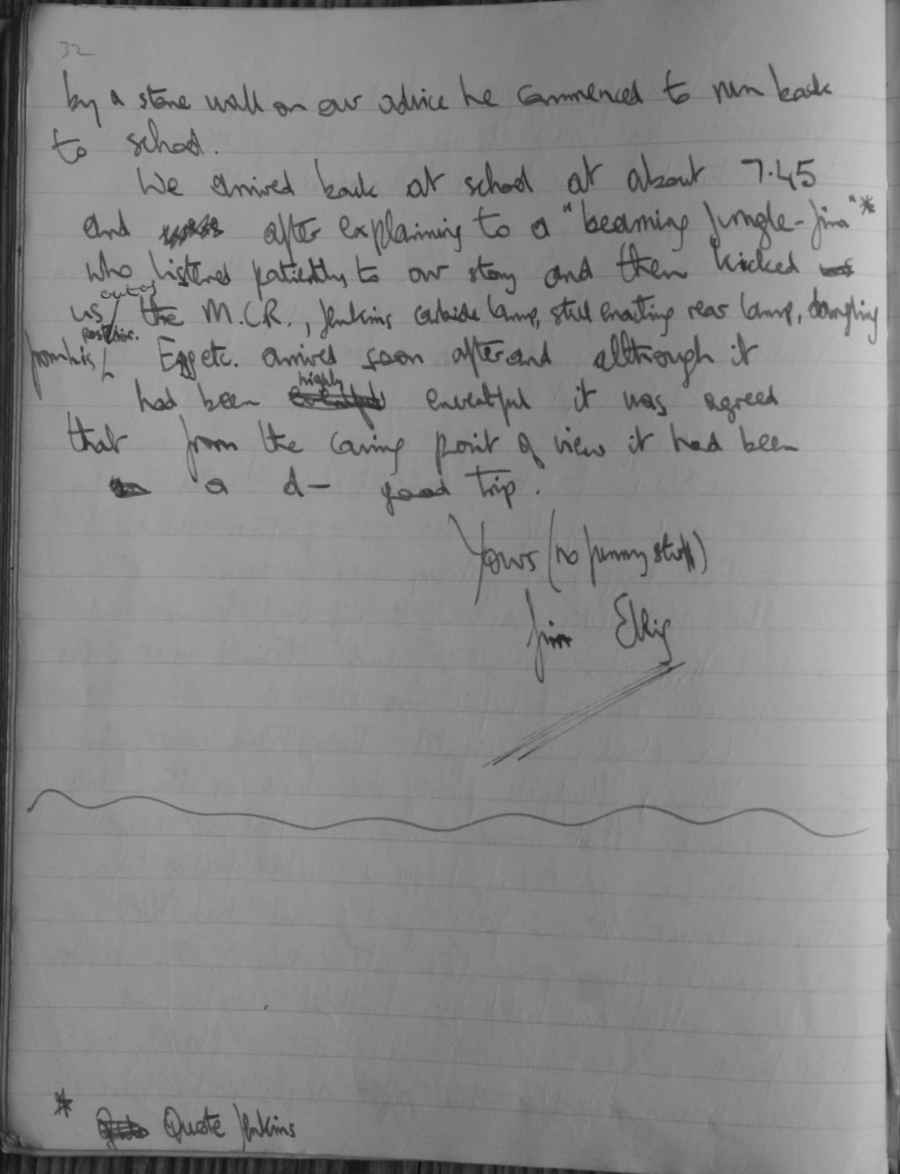 32
by a stone wall on our advice he commenced to run back
to school.
We arrived back at school at about 7.45
and after explaining to a "beaming Jungle-Jim"*
who listened patiently to our story and then kicked
us out of the M.C.R., Jenkins carbide lamp, still emitting rear lamp, dangling
from his posterior. Egg etc. arrived soon after and although it
had been highly eventful it was agreed
that from the caving point of view it had been
a d— good trip.
Yours (no funny stuff)
Jim Ellis
* Quote Jenkins